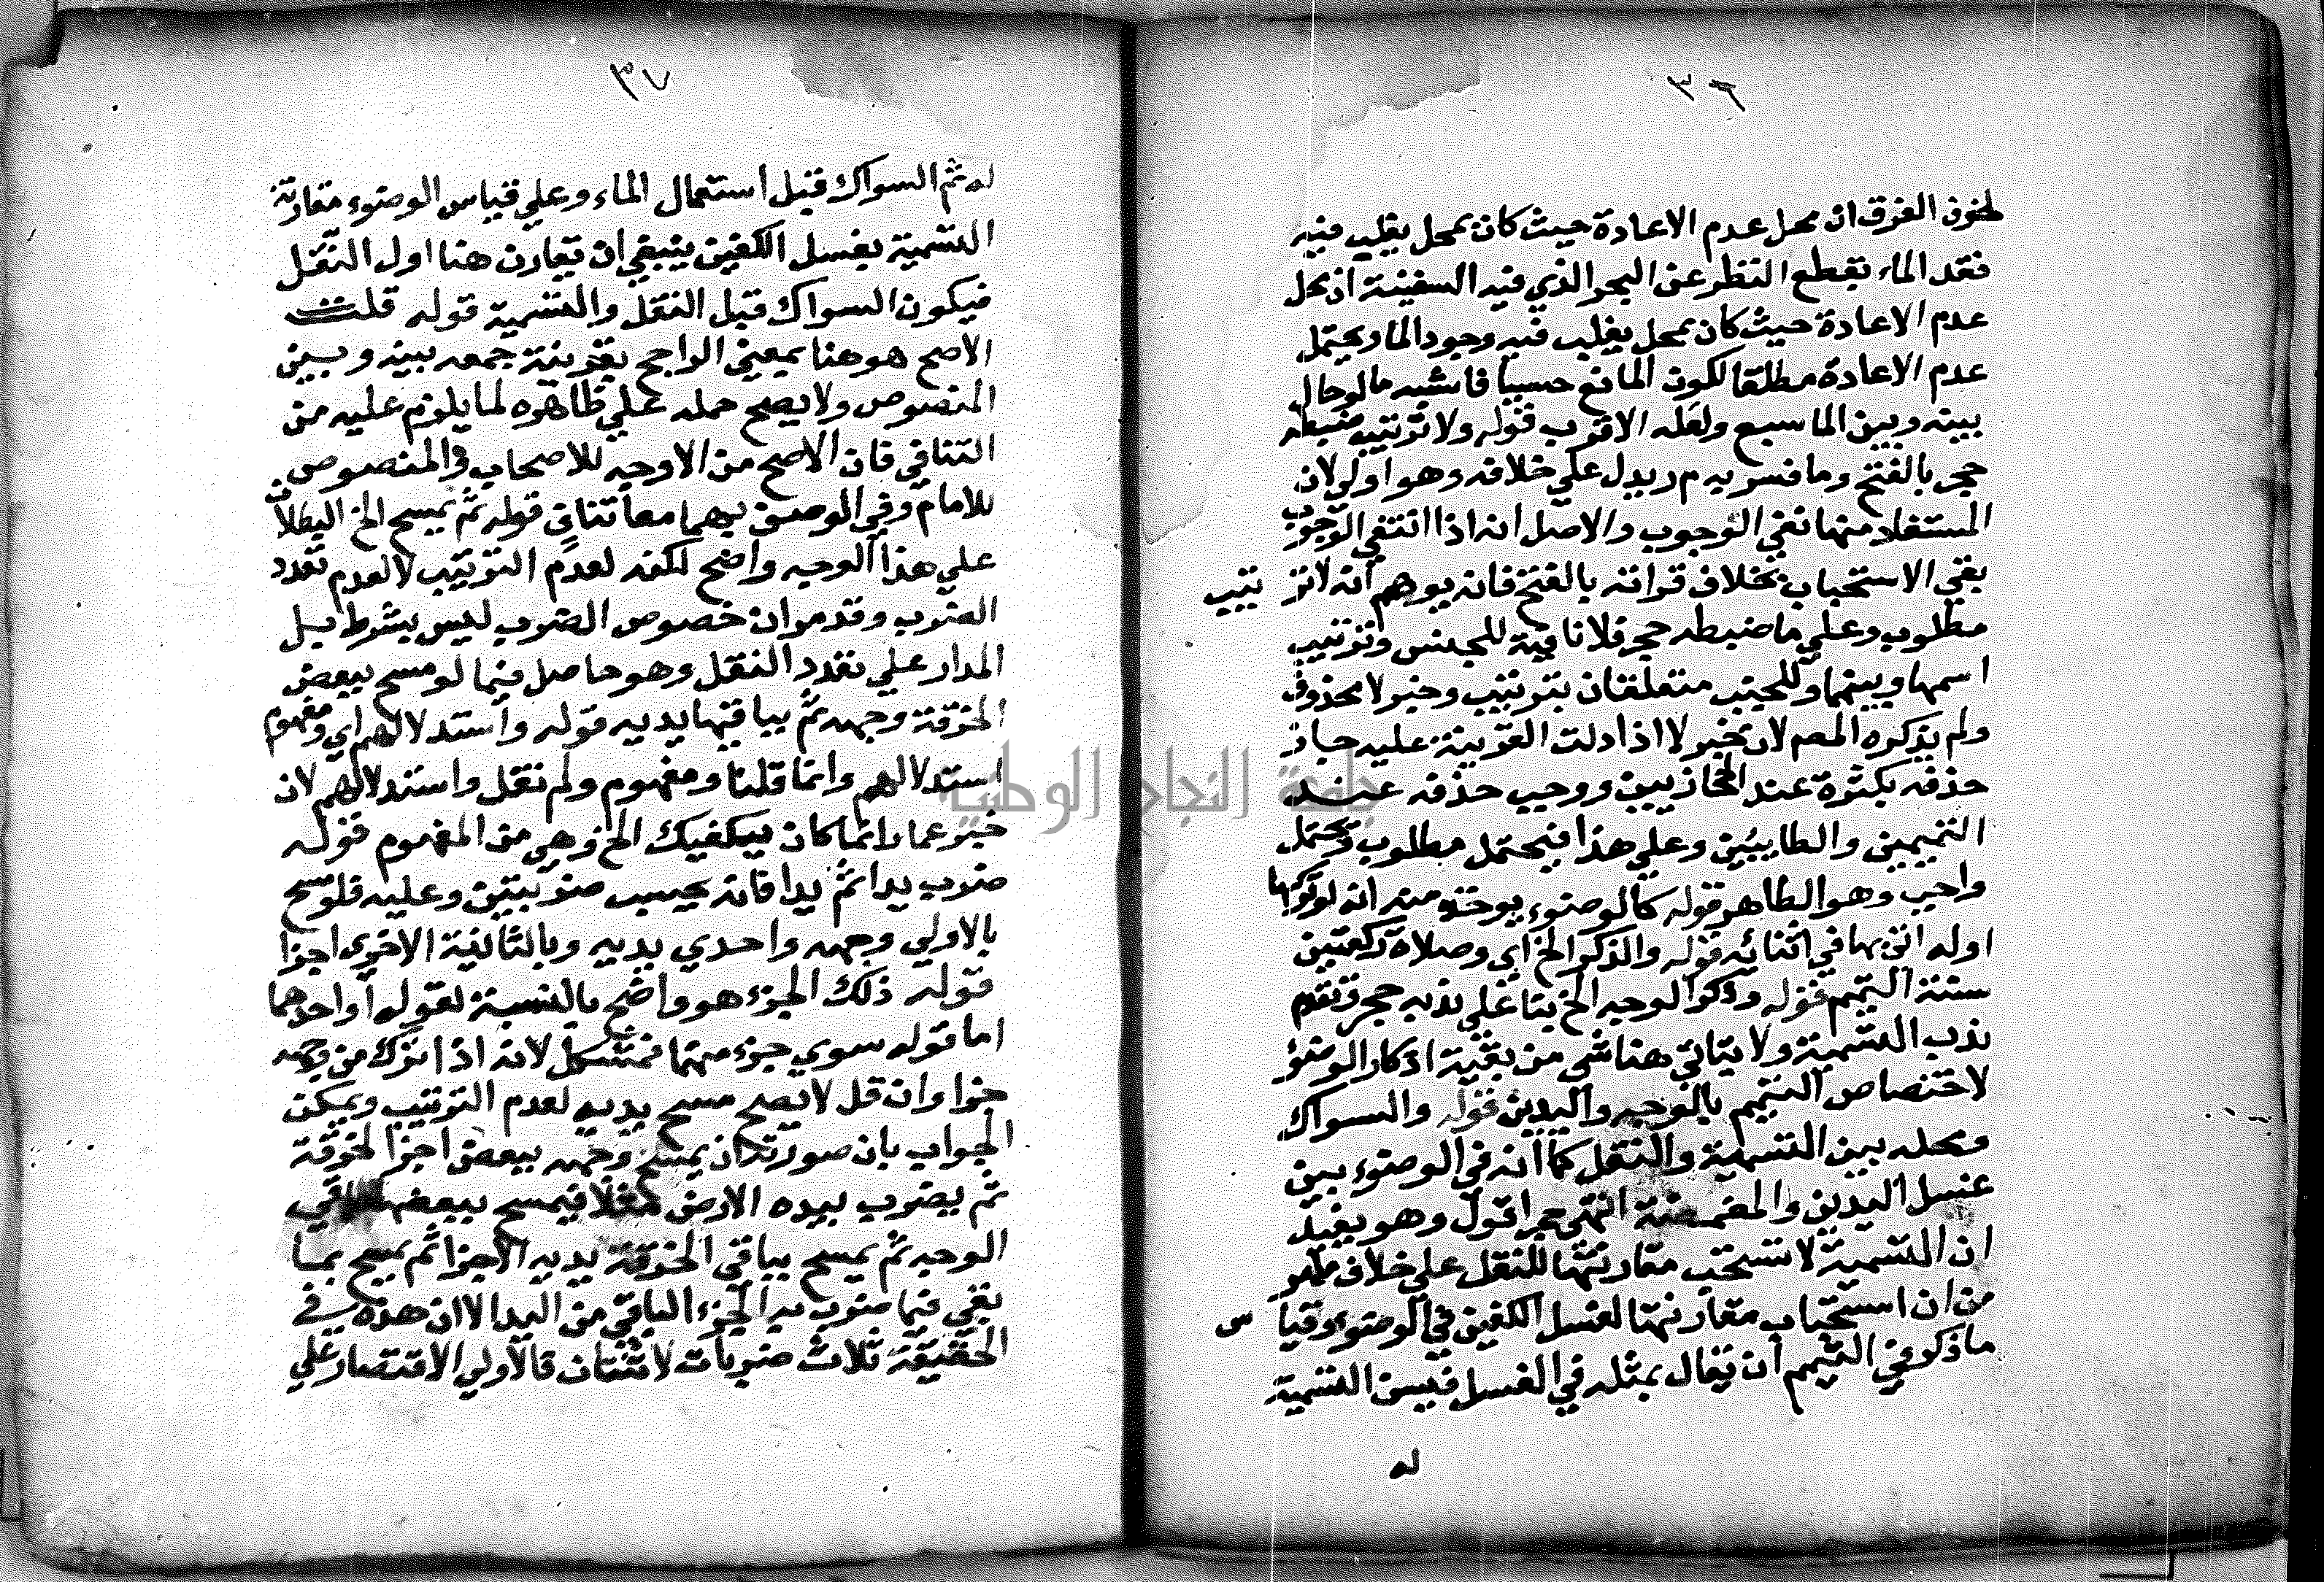 ٣٦
لخوف الغرق ان محل عدم الاعادة حيث كان بمحل يغلب فيه
فقد الماء بقطع النظر عن البحر الذي فيه السفينة ان محل
عدم الاعادة حيث كان بمحل يغلب فيه وجود الما ويحتمل
عدم الاعادة مطلقا لكون المانع حسيا فاشبه ما لو حال
بينه وبين الما سبع ولعله الاقرب قوله ولا ترتيب ضبطه
حجر بالفتح وما فسر به م ر يدل علي خلافه وهو اولي لان
المستفاد منها نفي الوجوب والاصل انه اذا انتفي الوجوب
بقي الاستحباب بخلاف قراته بالفتح فانه يوهم انه لا ترتيب
مطلوب وعلي ما ضبطه حجر فلا نافية للجنس وترتيب
اسمها وبينهما وللجنب متعلقان بترتيب وخبر لا محذوف
ولم يذكره المصم لان خبر لا اذا دلت القرينة عليه جاز
حذفه بكثرة عند الحجازيين ووجب حذفه عند
التميميين والطاييين وعلي هذا فيحتمل مطلوب ويحتمل
واجب وهو الظاهر قوله كالوضوء يوخذ منه انه لو تركها
اوله اتي بها في اثنائه قوله والذكر الخ اي وصلاة ركعتين
سنة التيمم قوله وذكر الوجه الخ بنا علي ندبه حجر وتقدم
ندب التسمية ولا يتاتي هنا شي من بقية اذكار الوضوء
لاختصاص التيمم بالوجه واليدين قوله والسواك
ومحله بين التسمية والنقل كما انه في الوضوء بين
غسل اليدين والمضمضة انتهي حجر اقول وهو يفيد
ان التسمية لا تستحب مقارنتها للنقل علي خلاف ما مر
من ان استحباب مقارنتها لغسل الكفين في الوضوء وقياس
ما ذكر في التيمم ان يقال بمثله في الغسل فيسن التسمية
له
٣٧
له ثم السواك قبل استعمال الماء وعلي قياس الوضوء مقارنة
التسمية بغسل الكفين ينبغي ان تقارن هنا اول النقل
فيكون السواك قبل النقل والتسمية قوله قلت
الاصح هو هنا بمعني الراجح بقرينة جمعه بينه وبين
المنصوص ولا يصح حمله علي ظاهره لما يلزم عليه من
التنافي فان الاصح من الاوجه للاصحاب والمنصوص
للامام وفي الوصف بهما معا تناف قوله ثم يمسح الخ البطلان
علي هذا الوجه واضح لكنه لعدم الترتيب لا لعدم تعدد
الضرب وقد مر ان خصوص الضرب ليس بشرط بل
المدار علي تعدد النقل وهو حاصل فيما لو مسح ببعض
الخرقة وجهه ثم بباقيها يديه قوله واستدلالهم اي ومفهوم
استدلالهم وانما قلنا ومفهوم ولم نقل واستدلالهم لان
خبر عمار انما كان يكفيك الخ وهي من المفهوم قوله
ضرب يدا ثم يدا فانه يحسب ضربتين وعليه فلو مسح
بالاولي وجهه واحدي يديه وبالثانية الاخري اجزا
قوله ذلك الجزء هو واضح بالنسبة لقوله او احدهما
اما قوله سوي جزء منهما فمشكل لانه اذا ترك من وجهه
جزا وان قل لا يصح مسح يديه لعدم الترتيب ويمكن
الجواب بان صورته ان يمسح وجهه ببعض اجزا الخرقة
ثم يضرب بيده الارض مثلا فيمسح ببعضها باقي
الوجه ثم يمسح بباقي الخرقة يديه الا جزا ثم يمسح بما
بقي فيما ضرب به الجزء الباقي من اليد الا ان هذه في
الحقيقة ثلاث ضربات لا ثنتان فالاولي الاقتصار علي
جامعة النجاح الوطنية